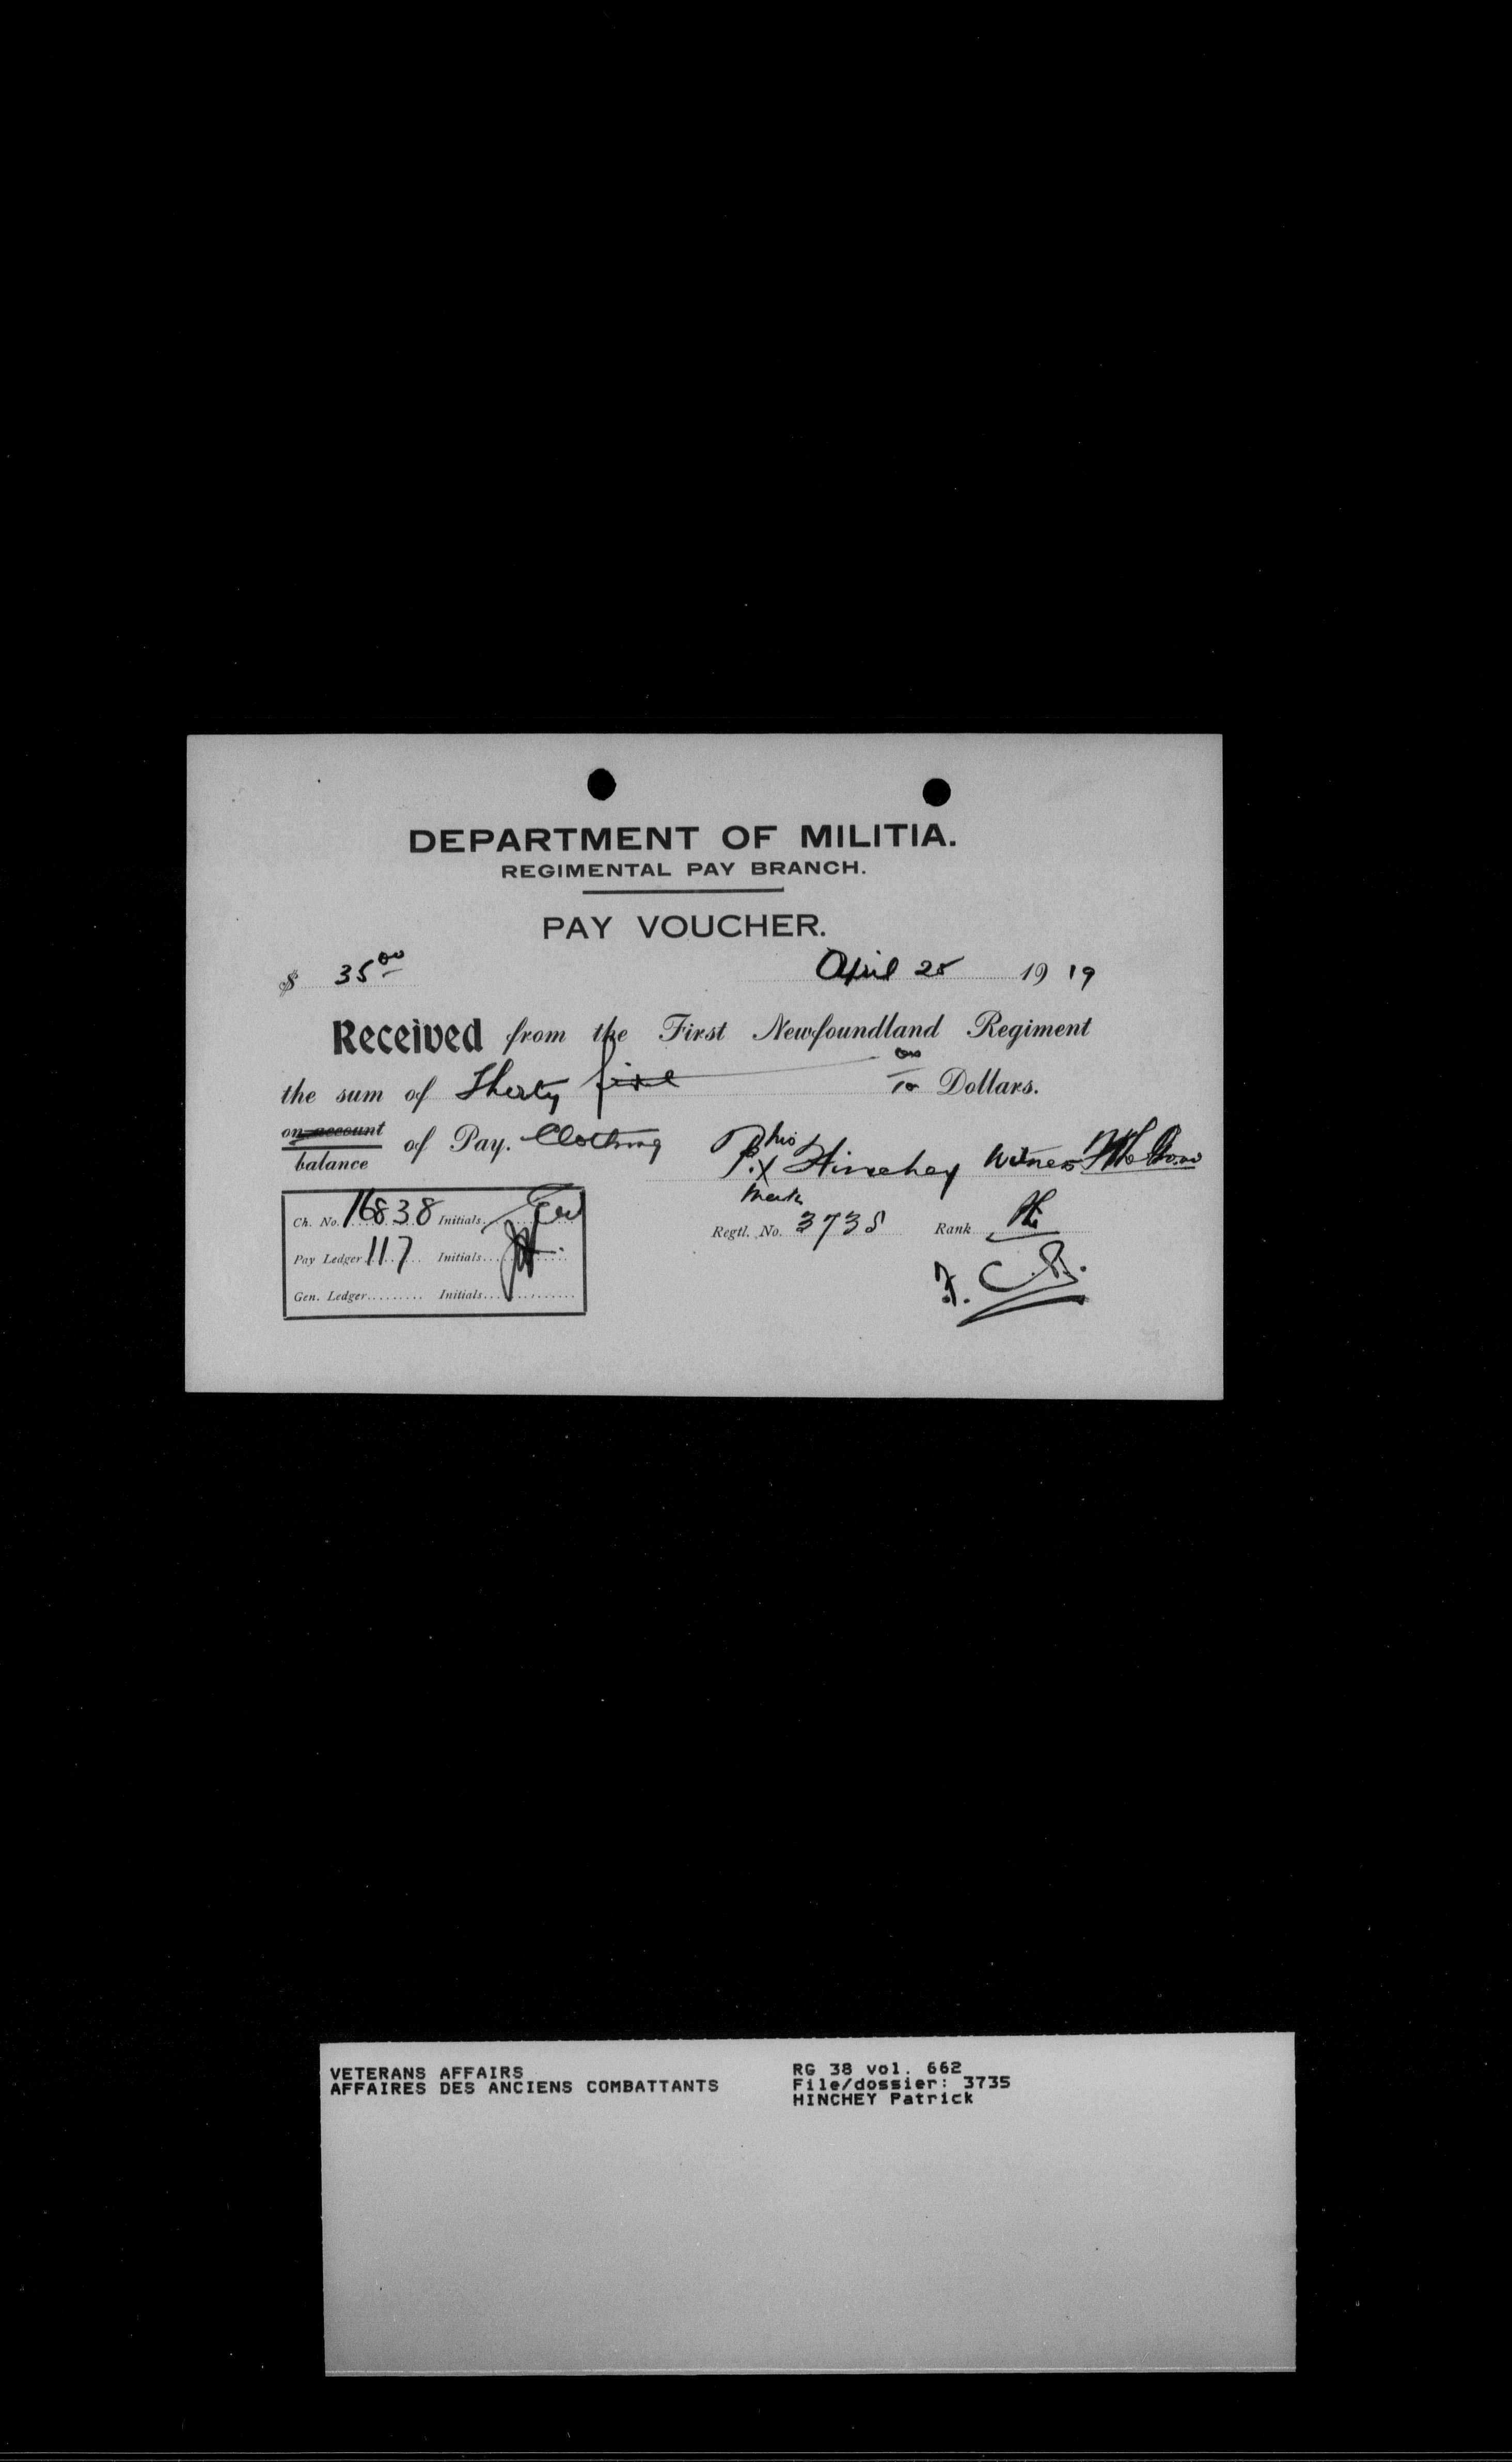 DEPARTMENT OF MILITIA.
REGIMENTAL PAY BRANCH.
PAY VOUCHER.
$ 35 00 April 25 19 19
Received from the First Newfoundland Regiment
the sum of Thirty five 00 Dollars.
on account
balance of Pay. Clothing
his
P. X Hinchey Witness
mark
Ch. No. 16838 Initials
Regtl. No. 3735 Rank
Pay Ledger 117 Initials
Gen. Ledger Initials
VETERANS AFFAIRS
AFFAIRES DES ANCIENS COMBATTANTS
RG 38 vol. 662
File/dossier: 3735
HINCHEY Patrick